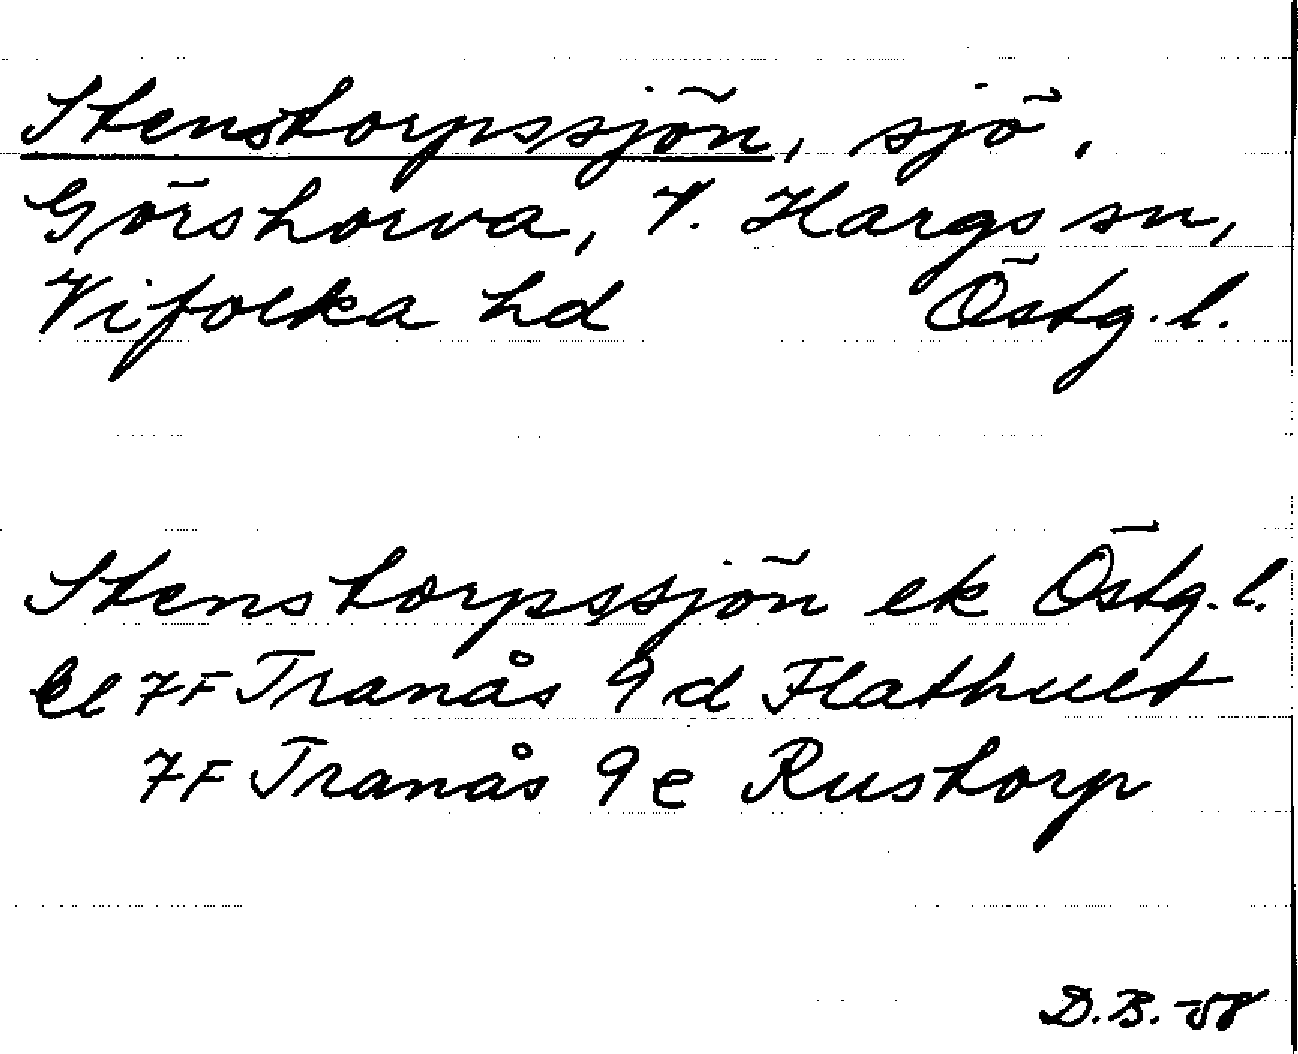 Stenstorpssjön, sjö,
Görshorva, V. Hargs sn,
Vifolka hd Östg. l.
Stenstorpssjön ek Östg. l.
bl 7F Tranås 9 d Flathult
7F Tranås 9 e Rustorp
D.B. -58